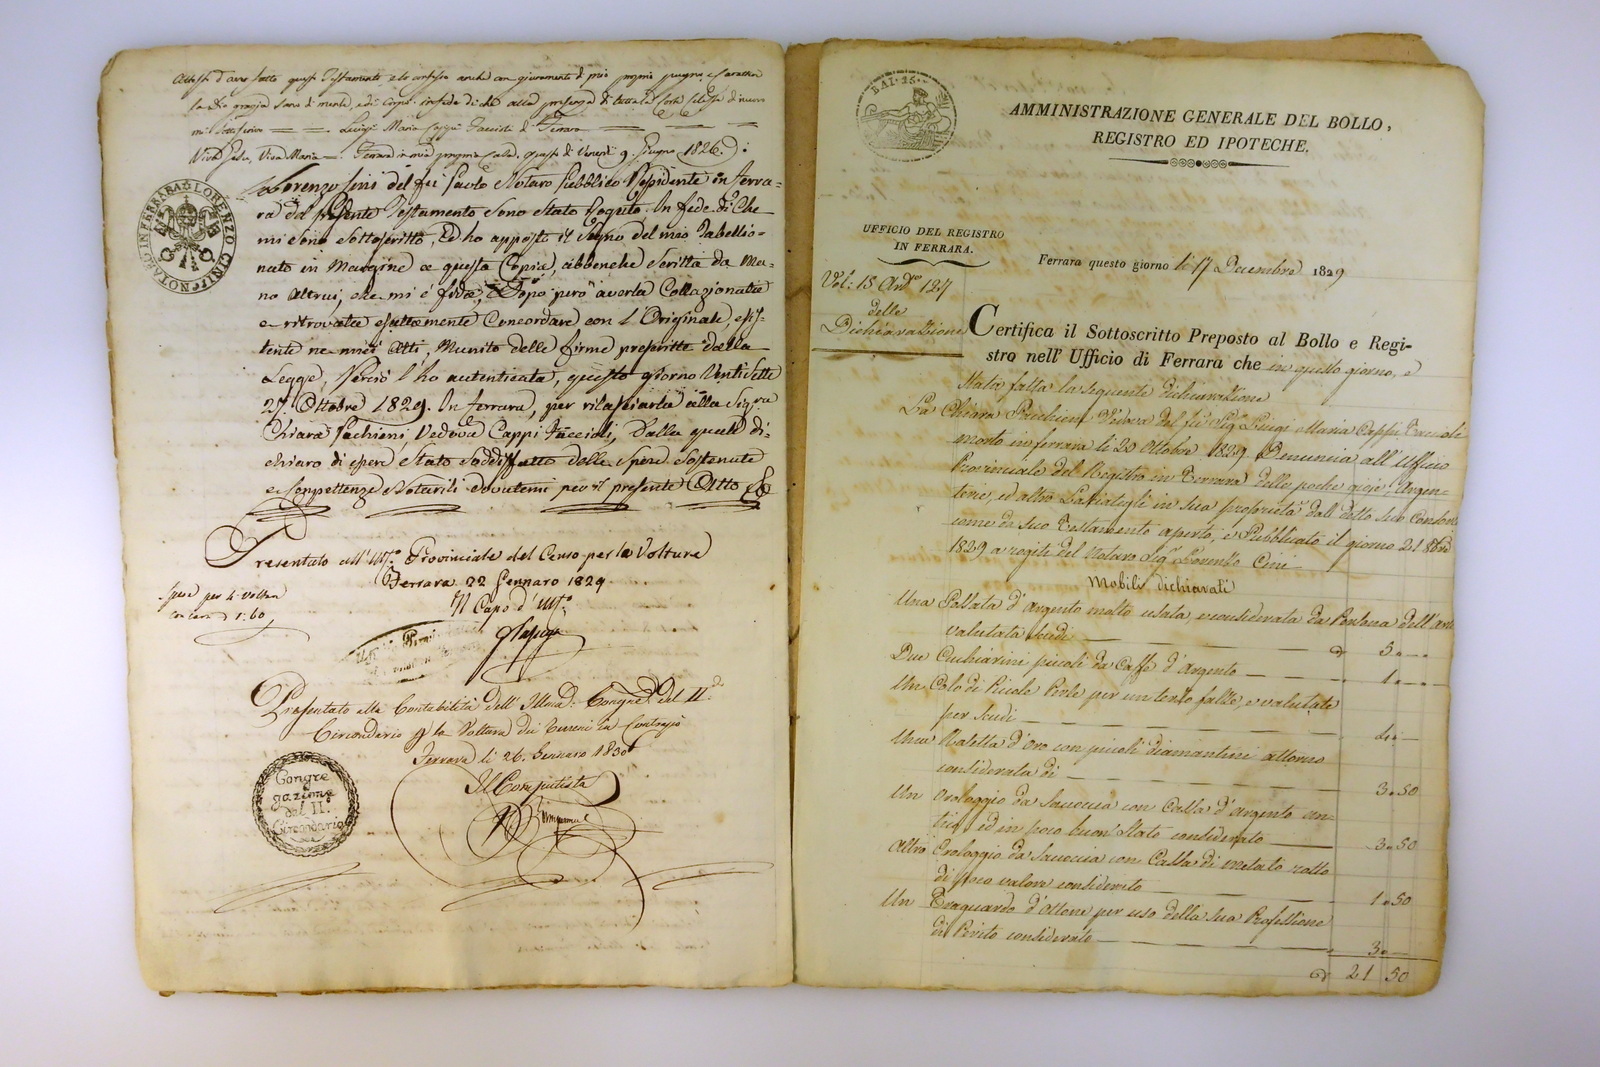 Attesto d'aver fatto questo Testamento, e lo confesso anche con giuramento di mio proprio pugno, e carattere
la Dio grazia sano di mente, e di Corpo, in fede di che alla presenza di tutta la Corte Celeste di nuovo
mi sottoscrivo = = Luigi Maria Cappi Faccioli di Ferrara
Viva Gesù, Viva Maria = Ferrara in mia propria Casa questo dì Venerdì 9. Giugno 1826
LORENZO CINI NOTARO IN FERRARA
Lorenzo Cini del fù Paolo Notaro Pubblico Residente in Ferra=
ra del presente Testamento sono stato Rogato. In fede di che
mi sono sottoscritto, Ed ho apposto il Segno del mio Tabellio=
nato in Margine a questa Copia, abbenche scritta da Ma=
no altrui, che mi è fida, e Dopo però averla Collazionata
e ritrovata esattamente Concordare con l'Originale, esis=
tente ne miei Atti, Munito delle firme prescritte dalla
Legge, Perciò l'ho autenticata, questo giorno Venti Sette
27. Ottobre 1829. In Ferrara, per rilasciarla alla Sigra
Chiara Pachieni, Vedova Cappi Faccioli, Dalla quale di=
chiaro di essere stato soddisfatto delle Spese Sostenute
e Competenze Notarili dovutemi per il presente Atto
Presentato all'Uffo Provinciale del Censo per la Volture
Ferrara 22 Gennaro 1829
Il Capo d'Uffo
spese per 4. Volture
1:60
Presentato alla Contabilità dell' Congne del II.
Circondario p la Voltura dei Terreni in Contropò
Ferrara li 26. Gennaro 1830
Il Computista
Congre
gazione
del II.
Circondario
BAI. 15.
AMMINISTRAZIONE GENERALE DEL BOLLO,
REGISTRO ED IPOTECHE.
UFFICIO DEL REGISTRO
IN FERRARA.
Ferrara questo giorno li 17 Decembre 1829
Vol: 15 Ardo 127
delle
Dichiarazione
Certifica il Sottoscritto Preposto al Bollo e Regi-
stro nell' Ufficio di Ferrara che in questo giorno, è
stata fatta la seguente dichiarazione
La Chiara Pachieni Vedova del fù Sigr Luigi Maria Cappi Faccioli
morto in ferrara li 20 Ottobre 1829. Denuncia all' Ufficio
Provinciale del Registro in Ferrara delle poche gioje, Argen=
terie, ed altro Lasciategli in sua proprietà dall detto suo Consorte
come da suo Testamento aperto, e Pubblicato il giorno 21 8bre
1829 a rogiti del Notaro Sigr Lorenzo Cini
Mobili dichiarati
Una Possata d'argento molto usata, e considerata da Persona dell'arte
valutata scudi 5
Due Cuchiarini piccoli da Caffe d'argento 1
Un Colo di Picole Perle per un terzo false, e valutate
per scudi 4
Una Rosetta d'oro con piccoli diamantini attorno
considerata di 3.50
Un Orologgio da saccocia con Cassa d'argento an=
tico, ed in poco buon stato considerato 3.50
Altro Orologgio da saccocia con Cassa di metalo rotto
di poco valore considerato 1.50
Un Traguardo d'Ottone per uso della sua Professione
di Perito considerato 3
21 50